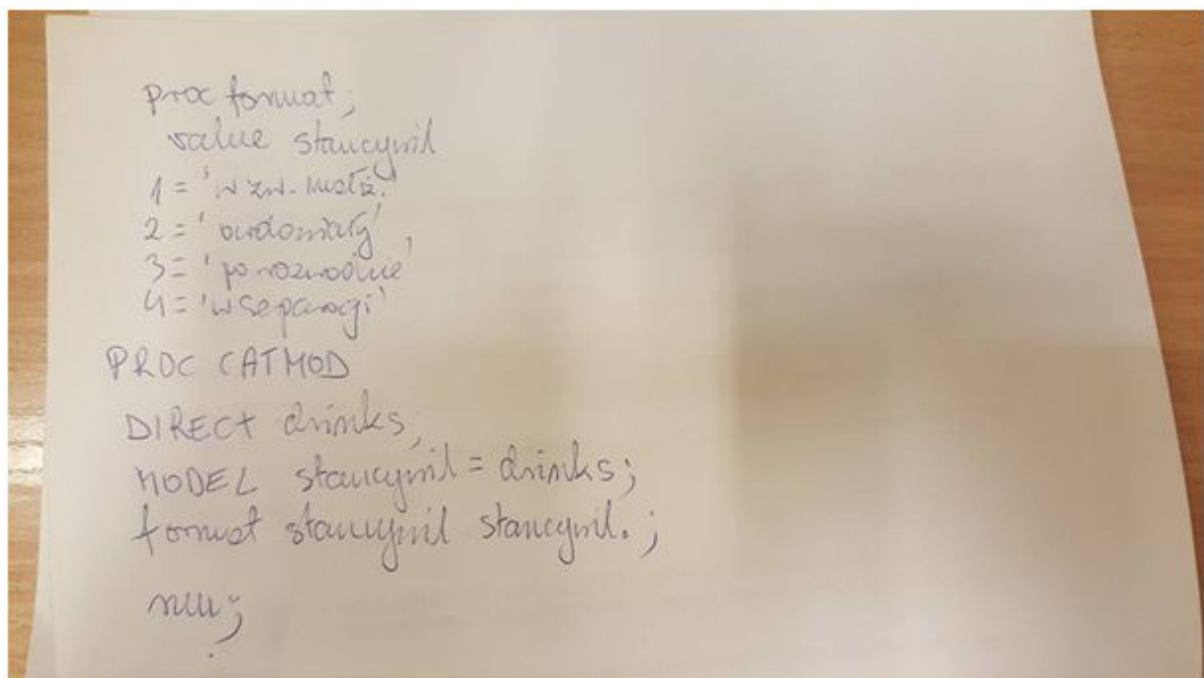 proc format;
value stancywil
1 = 'w zw. małż.'
2 = 'owdowiały'
3 = 'po rozwodzie'
4 = 'w separacji'
PROC CATMOD
DIRECT drinks;
MODEL stancywil = drinks;
format stancywil stancywil. ;
run;